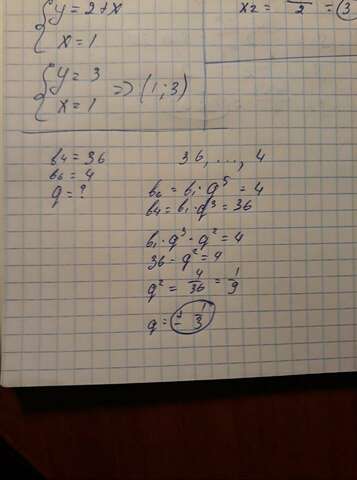 { y = 2 + x
x = 1
x₂ = — / 2 = (3
{ y = 3
x = 1 => (1; 3)
b₄ = 36
b₆ = 4
q = ?
36, ..., 4
b₆ = b₁ · q⁵ = 4
b₄ = b₁ · q³ = 36
b₁ · q³ · q² = 4
36 · q² = 4
q² = 4/36 = 1/9
q = ± 1/3